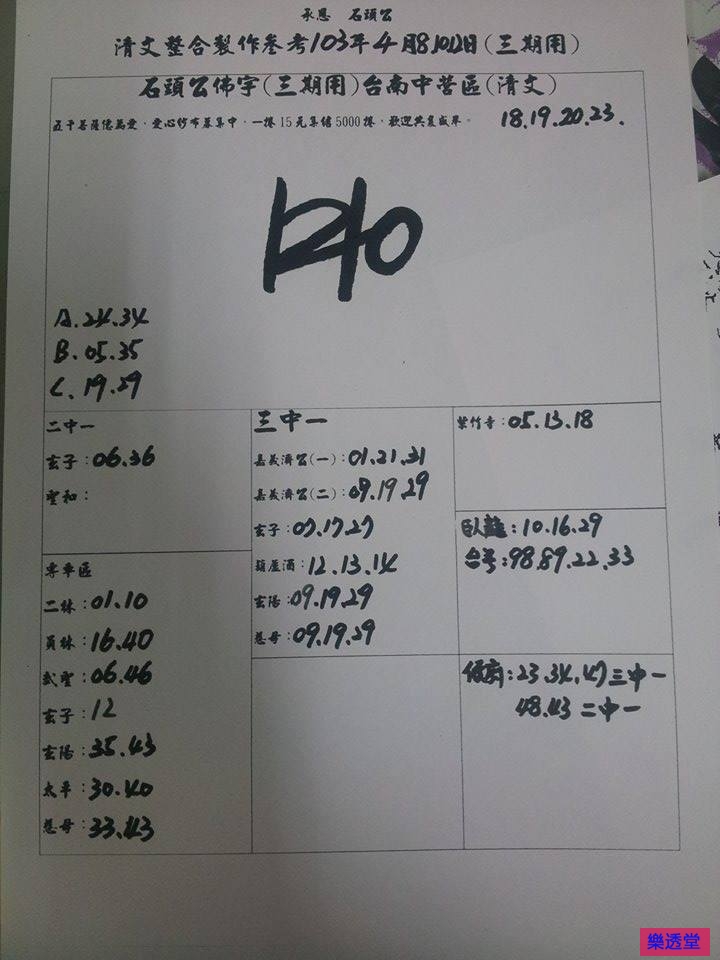 承恩 石頭公
清文整合製作參考103年4月8.10.12日(三期用)
石頭公佛宇(三期用)台南中營區(清文)
五千菩薩億萬愛，愛心竹布募集中，一捲15元集結5000捲，歡迎共襄盛舉。 18.19.20.23.
A.24.34
B.05.35
C.19.29
二中一
玄子：06.36
聖和：
專車區
二林：01.10
員林：16.40
武聖：06.46
玄子：12
玄陽：35.43
太平：30.40
慈母：33.43
三中一
嘉義濟公(一)：01.21.31
嘉義濟公(二)：09.19.29
玄子：07.17.27
葫蘆酒：12.13.14
玄陽：09.19.29
慈母：09.19.29
紫竹寺：05.13.18
臥龍：10.16.29
台号：98.89.22.33
23.34.47三中一
48.43 二中一
樂透堂